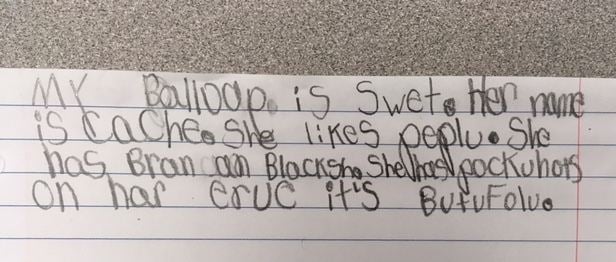 My Balloop. is Swet. Her name
is CaChe. She likes peplu. She
has Bran an Blacksho She has pockuhots
on har eruc it's ButuFolu.